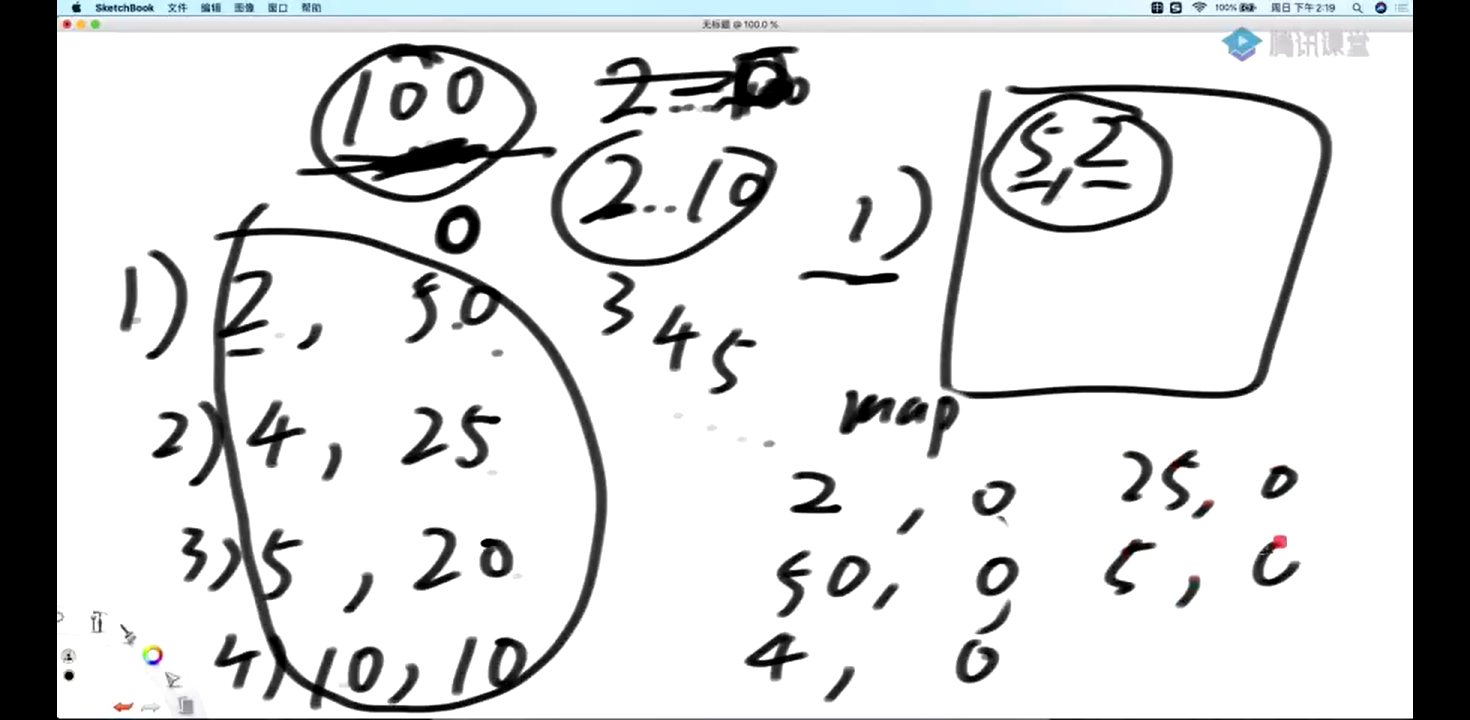 SketchBook 文件 编辑 图像 窗口 帮助
100% 周日 下午 2:19
无标题 @ 100.0 %
腾讯课堂
100
2..10
0
1) 2, 50
2) 4, 25
3) 5, 20
4) 10, 10
3 4 5
1) 5, 2
map
2, 0 25, 0
50, 0 5, 0
4, 0